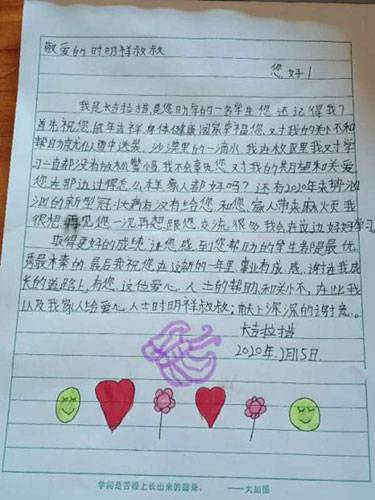 敬爱的时明祥叔叔
您好！
我是卡吉拉措,是您助学的一名学生您还记得我？
首先祝您鼠年吉祥,身体健康阖家幸福您对我的关心和
帮助就像雪中送炭、沙漠里的一滴水,我在校园里我对学
习一直都没有放松警惕,我不会辜负您对我的期望和关爱
您在那边过得怎么样家人都好吗？还有2020年来势汹
汹的新型冠状病有没有给您和您家人带来麻烦我
很想再见您一次再想跟您交流很多我会在这边好好学习
取得更好的成绩让您感到您帮助的学生都是最优
秀最棒的最后我祝您在这新的一年里事业有成感谢在我成
长的道路上,有您这位爱心人士的帮助和关心,在此我
以及我家人给爱心人士时明祥叔叔；献上深深的谢意。
卡吉拉措
2020年 月15日
学问是苦根上长出来的甜果。 ——大加图